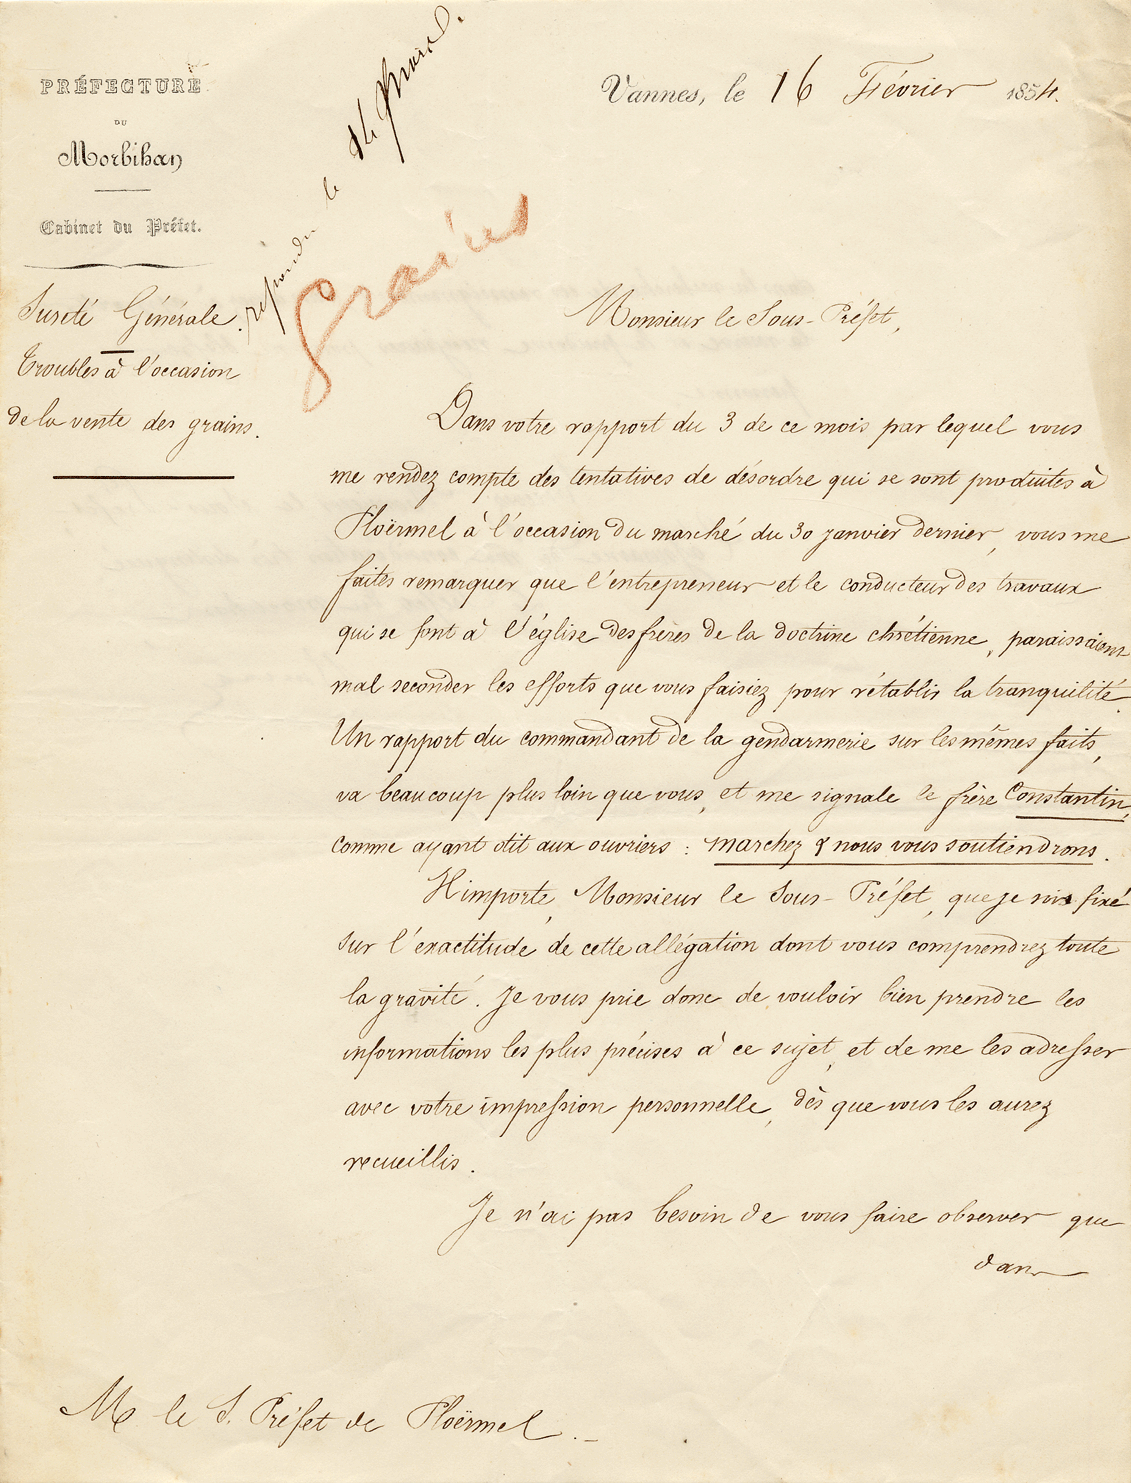 PRÉFECTURE
DU
Morbihan
Cabinet du Préfet.
Sureté Générale.
Troubles à l'occasion
de la vente des grains.
répondu le
Graines
Vannes, le 16 Février 1854.
Monsieur le Sous-Préfet,
Dans votre rapport du 3 de ce mois par lequel vous
me rendez compte des tentatives de désordre qui se sont produites à
Ploërmel à l'occasion du marché du 30 janvier dernier, vous me
faites remarquer que l'entrepreneur et le conducteur des travaux
qui se font à l'église des frères de la doctrine chrétienne, paraissaient
mal seconder les efforts que vous faisiez pour rétablir la tranquilité.
Un rapport du commandant de la gendarmerie sur les mêmes faits,
va beaucoup plus loin que vous, et me signale le frère Constantin,
comme ayant dit aux ouvriers : marchez & nous vous soutiendrons.
Il importe, Monsieur le Sous-Préfet, que je sois fixé
sur l'exactitude de cette allégation dont vous comprendrez toute
la gravité. Je vous prie donc de vouloir bien prendre les
informations les plus précises à ce sujet, et de me les adresser
avec votre impression personnelle, dès que vous les aurez
recueillis.
Je n'ai pas besoin de vous faire observer que
dans
M. le S. Préfet de Ploërmel.